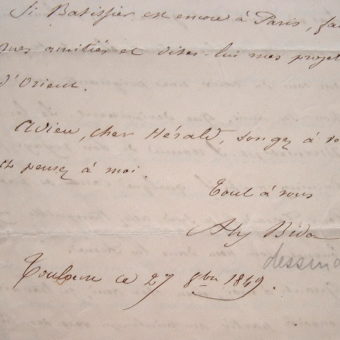 Si Batissier est encore à Paris, fai
mes amitiés et dites-lui mes projet
d'Orient.
Adieu, cher Hérald, songez à vo
et pensez à moi.
Tout à vous
Alx Bida
dessin
Toulouse ce 27 9bre 1849.